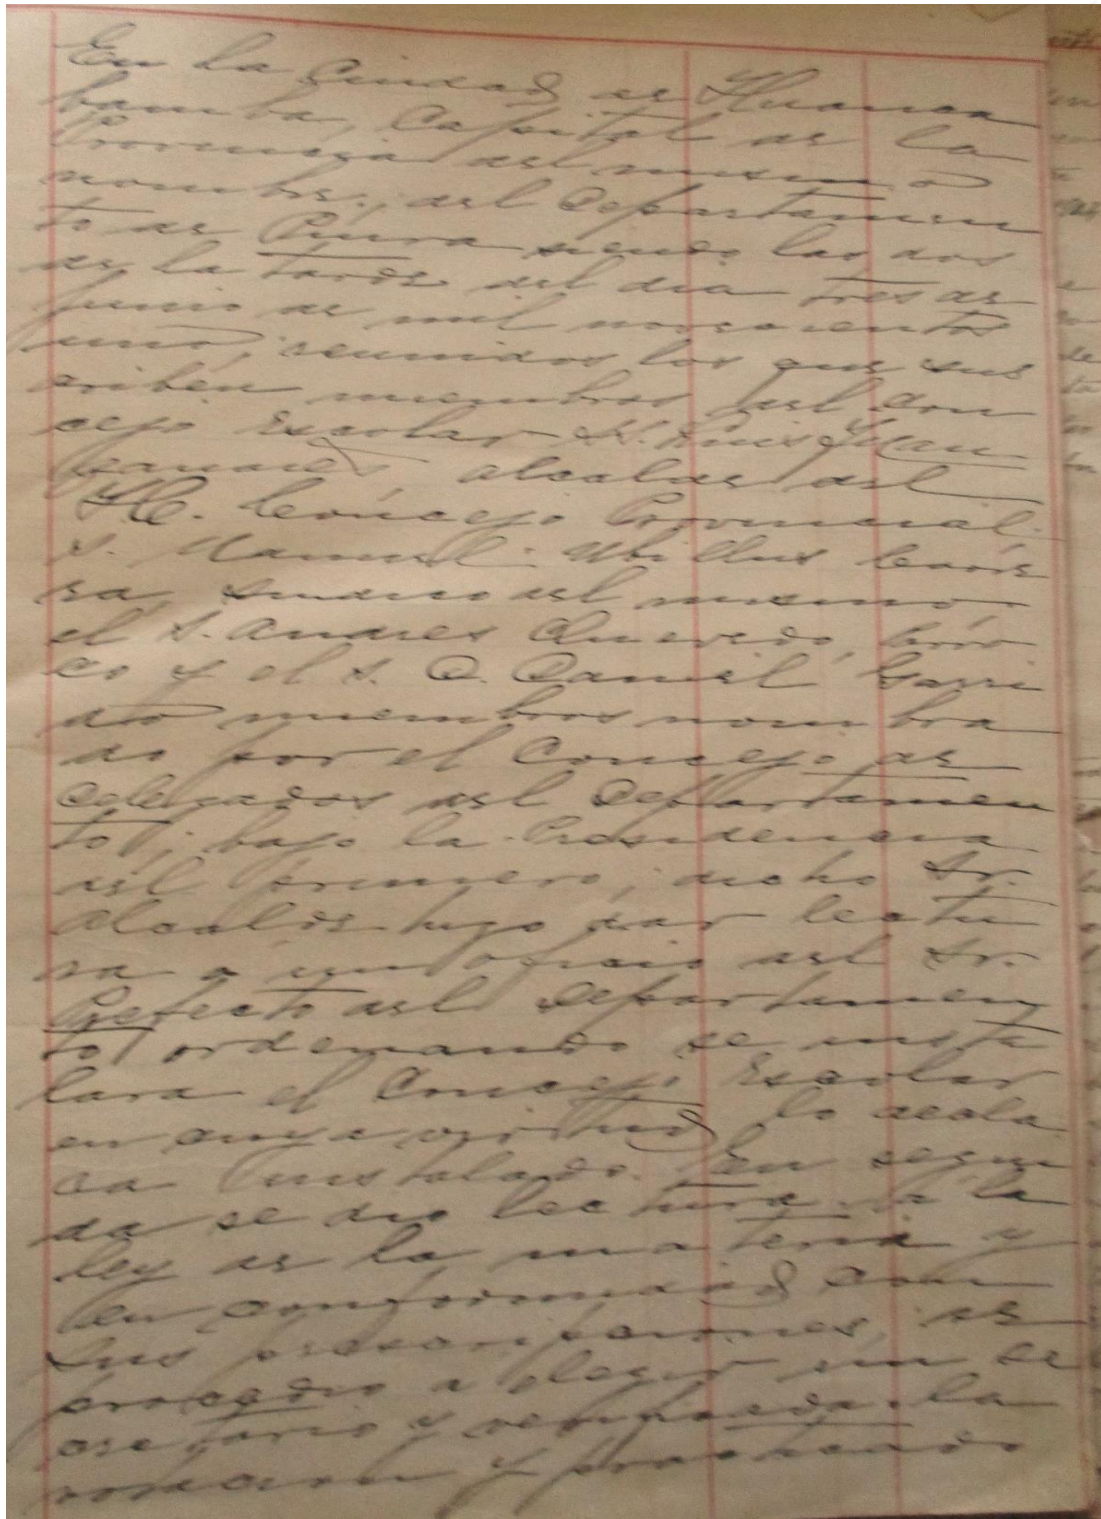 En la Ciudad de Huanca
bamba, Capital de la
Provincia del mismo
nombre, del Departamen
to de Piura siendo las dos
de la tarde del dia tres de
Junio de mil novecientos
uno, reunidos los que sus
criben miembros del Con
cejo Escolar S. Luis Juan
alcalde del
H. C. Concejo Provincial.
S. Manuel Ubillus
sindico del mismo
el S. Andres Quevedo, Párro
co y el S. D. Daniel Garri
do miembros nombra
do por el Concejo de
Delegados del Departamen
to; bajo la Presidencia
del primero; dicho Sr.
Alcalde hizo dar lectu
ra a un oficio del Sr.
Prefecto del departamen
to ordenando se insta
lara el Concejo Escolar
en cuya virtud lo decla
ra instalado. En segui
da se dio lectura a la
ley de la materia y
en conformidad con
sus prescripciones, se
procedio a elegir un se
cretario y la
votacion y practicado